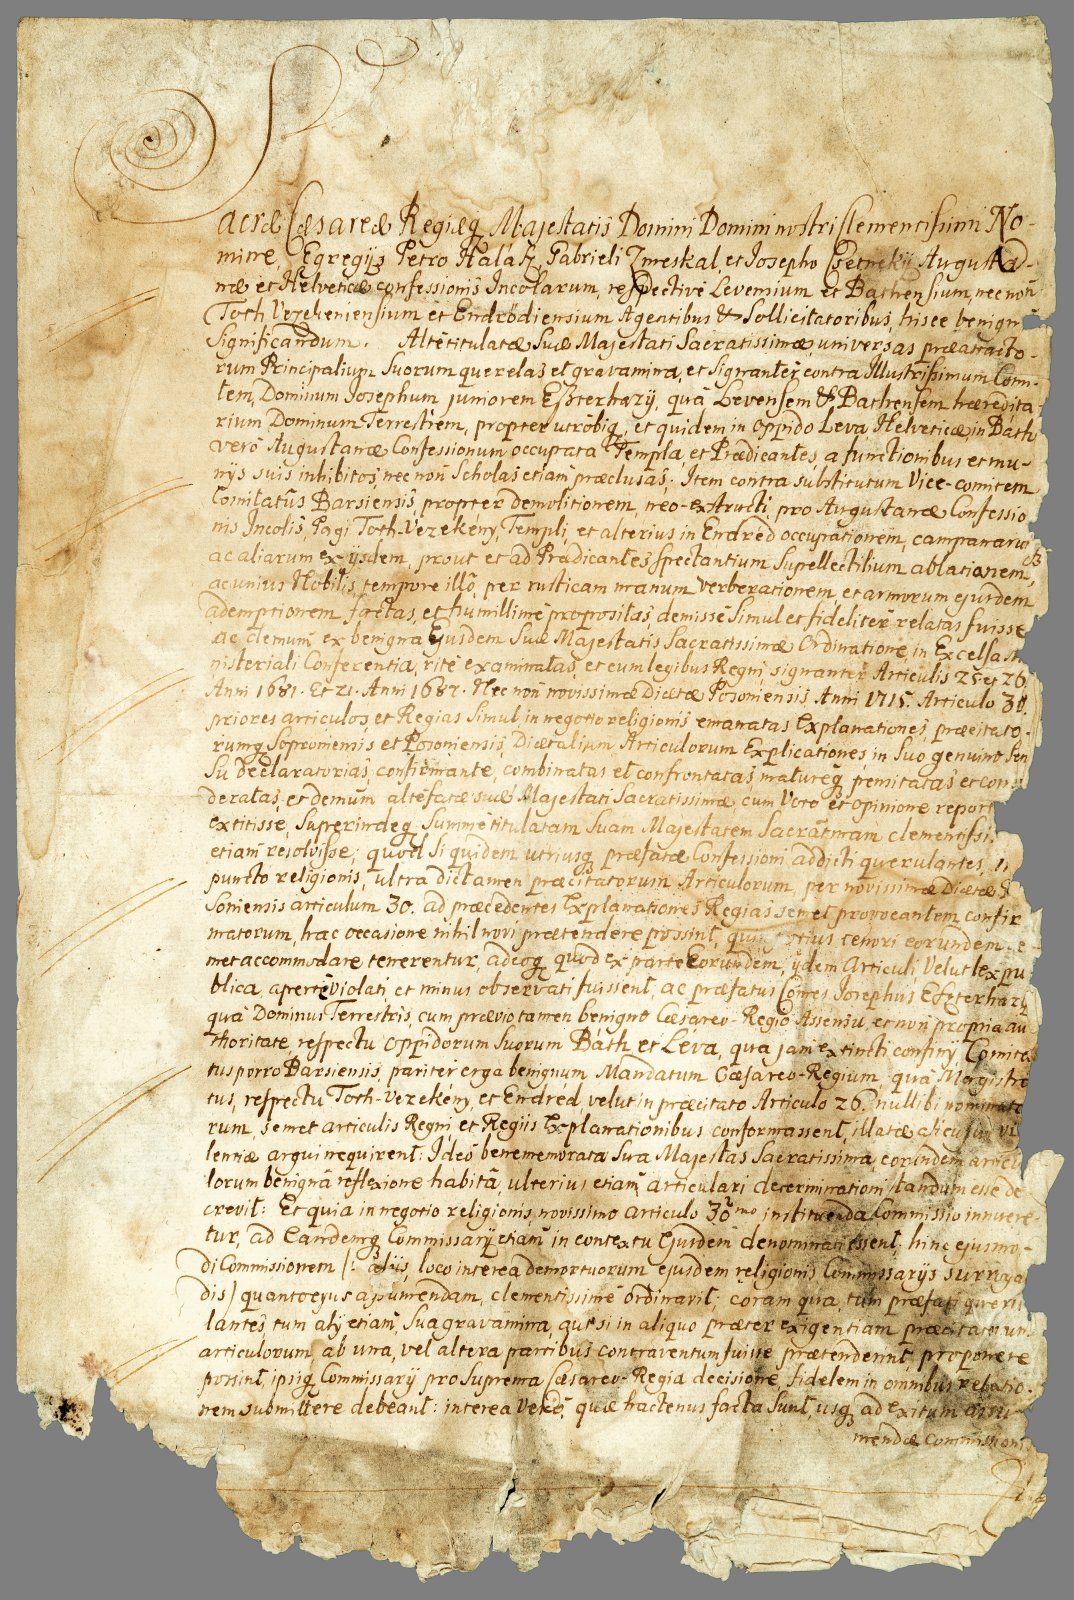 Sacræ Cæsareæ Regiæq Majestatis Domini Domini nostri Clementissimi No-
mine, Egregijs Petro Halász, Gabrieli Zmeskal, et Josepho Csetneky Augusta-
næ et Helveticæ confessionis Incolarum, respectivè Levensium et Bathensium, nec non
Toth Vezekeniensium et Endrődiensium Agentibus & Sollicitatoribus, hisce benignè
Significandum. Altètitulatæ Suæ Majestati Sacratissimæ, universas præattacto-
rum Principalium Suorum querelas et gravamina, et Signanter contra Illustrissimum Comi-
tem, Dominum Josephum juniorem Eszterhazÿ, quà Levensem & Bathensem hæredita
rium Dominum Terrestrem, propter utrobiq, et quidem in Oppido Leva Helveticæ, in Bath
verò Augustanæ Confessionum occupata Templa, et Prædicantes a functionibus et mu-
nijs suis inhibitos, nec non Scholas etiam præclusas; Item contra substitutum Vice-comitem
Comitatûs Barsiensis, propter demolitionem, neo-exstructi, pro Augustanæ Confessio
nis Incolis, Pagi Toth-Vezekeny, Templi, et alterius in Endrèd occupationem, campanarum
ac aliarum ex ijsdem, prout et ad Prædicantes spectantium Supellectilium ablationem,
ac unius Nobilis, tempore illo, per rusticam manum verberationem et armorum ejusdem
ademptionem factas, et humillimè propositas, demissè Simul et fideliter relatas fuisse
ac demum ex benigna Ejusdem Suæ Majestatis Sacratissimæ Ordinatione, in Excelsa
nisteriali Conferentia, ritè examinatas, et cum legibus Regni, signanter Articulis 25 et 26
Anni 1681. Et 21. Anni 1687. Nec non novissimæ Diætæ Posoniensis Anni 1715. Articulo 30.
priores articulos, et Regias Simul, in negotio religionis emanatas Explanationes, præcitato-
rumq Soproniensis et Posoniensis, Diætalium Articulorum Explicationes, in Suo genuino Sen
Su declaratorias, confirmante, combinatas et confrontatas, matureq, pensitatas et con
deratas, et demum altèfatæ suæ Majestati Sacratissimæ cum Voto et opinione report
extitisse, Superindeq, Summètitulatam Suam Majestatem Sacratmam clementissi
etiam resolvisse; quod Si quidem utriusq, præfatæ Confessioni addicti querulantes, in
puncto religionis, ultra dictamen præcitatorum Articulorum, per novissimæ Diætæ
Soniensis articulum 30. ad præcedentes Explanationes Regias semet provocantem, confir
matorum, hac occasione nihil novi prætendere possint, quin tenori eorundem
met accommodare tenerentur, adeoq, quod ex parte Eorundem, ijdem Articuli velut lex pu
blica apertè violati et minus observati fuissent, ac præfatus Comes Josephus Eszterházy
quà Dominus Terrestris, cum prævio tamen benigno Cæsareo-Regio Assensu, et non propria au
thoritate, respectu Oppidorum Suorum Báth et Léva, quà jam extincti confinij, Comita
tus porro Barsiensis, pariter erga benignum Mandatum Cæsareo-Regium, quà Magistra
tus, respectu Toth-Vezekény, et Endréd, velut in præcitato Articulo 26. nullibi nominato
rum, semet articulis Regni et Regiis Explanationibus conformassent, illatæ alicujus vi
lentiæ argui nequirent: Ideo benememorata Sua Majestas Sacratissima, eorundem articu
lorum benignâ reflexione habitâ, ulterius etiam articulari determinationi standum esse de
crevit: Et quia in negotio religionis, novissimo articulo 30mo, instituenda Commissio innuere-
tur, ad Eandemq, Commissarij etiam in contextu Ejusdem denominati essent; hinc ejusmo-
di Commissionem /: alijs, loco interea demortuorum ejusdem religionis Commissarijs surroga
dis/ quantocyus assumendam, clementissimè ordinavit; coram qua, tum præfati queru
lantes, tum alij etiam, sua gravamina, qui si in aliquo præter exigentiam præcitatorum
articulorum ab una, vel altera partibus contraventum fuisse prætenderint, proponere
possint, ipsiq, Commissarij pro Suprema Cæsareo-Regia decisione, fidelem in omnibus relatio-
nem submittere debeant: interea verò, quæ hactenus facta sunt, usq, ad exitum assu
mendæ Commissionis